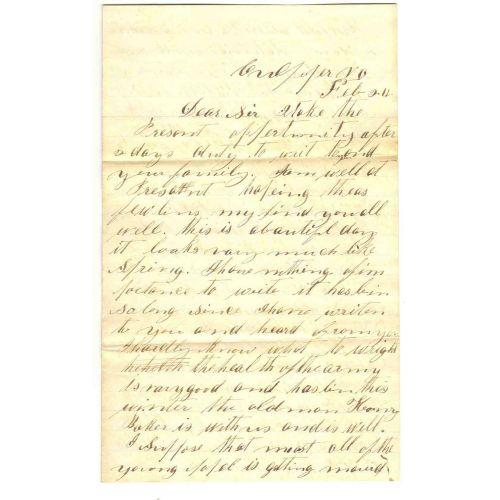 Culpiper Va
Feb 24
Dear Sir I take the
Present oppertunity after
2 days duty to writ to you and
your family. I am well at
Present hopeing theas
few lins my find you all
well. this is a beautiful day
it looks vary much like
Spring. I have nothing of im
portance to write it has bin
so long since I have writen
to you and heard from you
I hardley know what to wright
the health of the army
is vary good and has bin this
winter the old man Henry
is with us and is well.
I Suppose that most all of the
young is getting maried